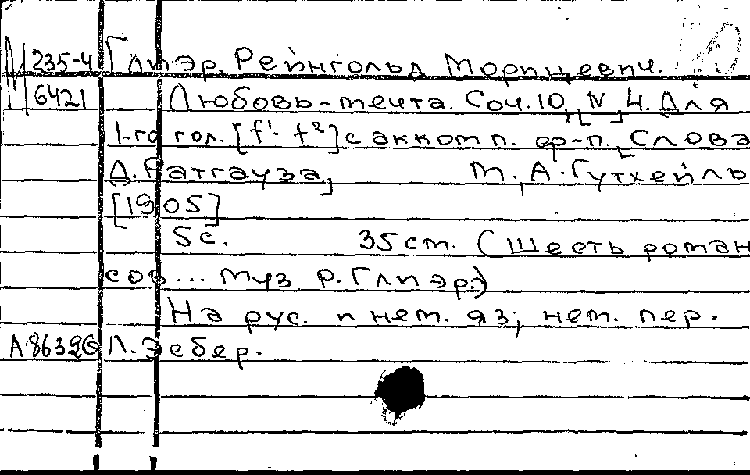 235-4 Глиэр, Рейнгольд Морицевич.
6421 Любовь-мечта. Соч. 10, [N 4. Для
1-го гол. [f¹-f²] с аккомп. ф-п., [Слова
Д. Ратгауза] М., А. Гутхейль
[1905]
5 с. 35 см. (Шесть роман
сов... муз Р. Глиэр.)
На рус. и нем. яз; нем. пер.
Л. Эсбер.